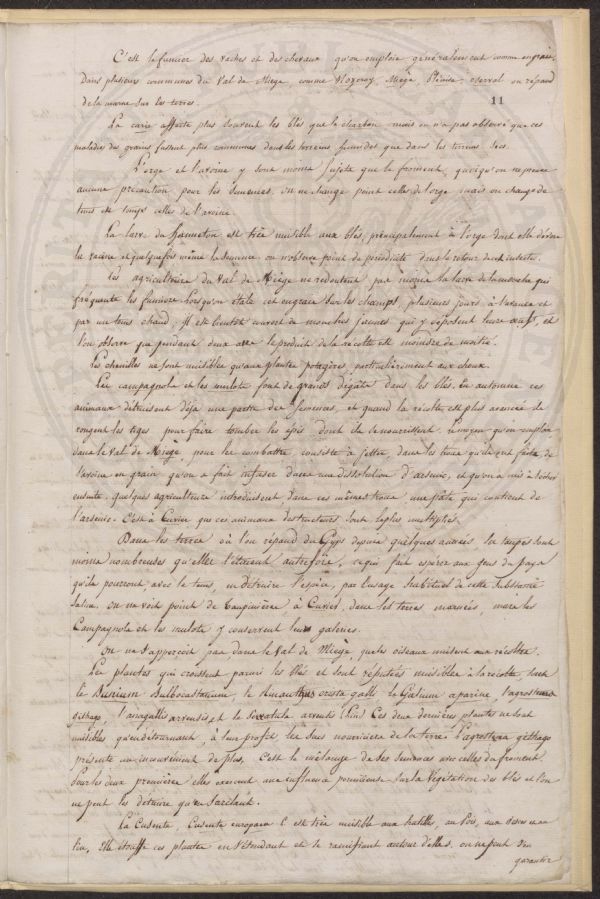 C'est le fumier des vaches et des chevaux qu'on emploie généralement comme engrais.
Dans plusieurs communes du Val de Miège comme Nozeroy, Miège, Plénise, on répand
de la marne sur les terres.
11
La carie affecte plus souvent les blés que le charbon mais on n'a pas observé que ces
maladies des grains fussent plus communes dans les terreins humides que dans les terreins secs.
L'orge et l'avoine y sont moins sujets que le froment, quoiqu'on ne prenne
aucune précaution pour les semences. on ne change point celles de l'orge mais on change de
tems en temps celles de l'avoine.
La larve du hanneton est très nuisible aux blés, principalement à l'orge dont elle dévore
la racine et quelquefois même la semence on n'observe point de périodicité dans le retour de ces insectes.
Les agriculteurs du Val de Miège ne redoutent pas moins la larve de la mouche qui
fréquente les fumiers lorsqu'on étale cet engrais sur les champs, plusieurs jours à l'avance et
par un tems chaud, il est bientôt couvert de mouches jaunes qui y déposent leurs œufs, et
l'on observe que pendant deux ans le produit de la récolte est moindre de moitié.
Les chenilles ne sont nuisibles qu'aux plantes potagères, particulièrement aux choux.
Les campagnols et les mulots font de grands dégâts dans les blés. En automne ces
animaux détruisent déja une partie des semences, et quand la récolte est plus avancée ils
rongent les tiges pour faire tomber les épis dont ils se nourrissent. Le moyen qu'on emploie
dans le Val de Miège pour les combattre, consiste à jetter dans les trous qu'ils ont faits de
l'avoine en grain qu'on a fait infuser dans une dissolution d'arsenic, et qu'on a mis à sécher
ensuite. quelques agriculteurs introduisent dans ces mêmes trous une pâte qui contient de
l'arsenic. C'est à Cuvier que ces animaux destructeurs sont le plus multipliés.
Dans les terres où l'on répand du Gyps depuis quelques années les taupes sont
moins nombreuses qu'elles l'étaient autrefois, ce qui fait espérer aux gens du pays
qu'ils pourront, avec le tems, en détruire l'espèce, par l'usage habituel de cette substance
saline. on ne voit point de taupinières à Cuvier, dans les terres marnées, mais les
Campagnols et les mulots y conservent leurs galeries.
On ne s'apperçoit pas dans le Val de Miège, que les oiseaux nuisent aux récoltes.
Les plantes qui croissent parmi les blés et sont réputées nuisibles à la récolte, sont
le Bunium Bulbocastanum, le Rinanthus crista galli le Galium aparine, l'agrostema
githago, l'anagallis arvensis et le Serratula arvensis (Lin) Ces deux dernières plantes ne sont
nuisibles qu'en détournant, à leur profit les sucs nourriciers de la terre. L'agrostema githago
présente un inconvénient de plus, c'est le mélange de ses semences avec celles du froment.
Pour les deux premières elles exercent une influence pernicieuse sur la végétation des blés et l'on
ne peut les détruire qu'en sarclant.
La Cuscute, Cuscuta europaea L est très nuisible aux lentilles, au Pois, aux vesces et au
lin, Elle étouffe ces plantes en s'étendant et se ramifiant autour d'elles. on ne peut s'en
garantir